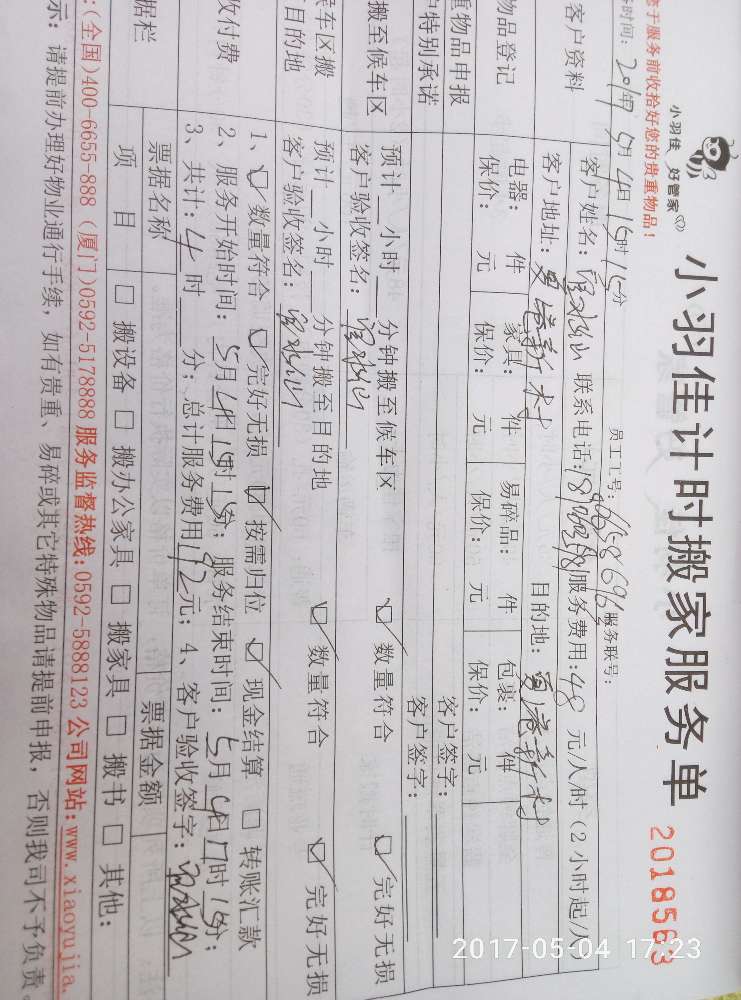 小羽佳 好管家
小羽佳计时搬家服务单 2018563
您于服务前收拾好您的贵重物品！
员工工号： 服务联号：
时间：2017年5月4日15时15分
客户资料
客户姓名： 联系电话： 服务费用：48 元/人/时（2小时起/人
客户地址： 新村 目的地： 新村
物品登记
电器： 件 家具： 件 易碎品： 件 包裹： 件
保价： 元 保价： 元 保价： 元 保价： 元
物品申报 客户签字：
特别承诺 客户签字：
搬至候车区
预计 小时 分钟搬至候车区 ☑ 数量符合 ☑ 完好无损
客户验收签名：
候车区搬
目的地
预计 小时 分钟搬至目的地 ☑ 数量符合 ☑ 完好无损
客户验收签名：
收付费
1、☑ 数量符合 ☑ 完好无损 ☑ 按需归位 ☑ 现金结算 □ 转账汇款
2、服务开始时间：5月4日15时15分；服务结束时间：5月4日17时15分；
3、共计：4时 分；总计服务费用192元；4、客户验收签字：
据栏
票据名称 票据金额
项 目 □ 搬设备 □ 搬办公家具 □ 搬家具 □ 搬书 □ 其他：
:(全国)400-6655-888（厦门)0592-5178888 服务监督热线:0592-5888123 公司网站:www.xiaoyujia.
示：请提前办理好物业通行手续，如有贵重、易碎或其它特殊物品请提前申报，否则我司不予负责。
2017-05-04 17:23